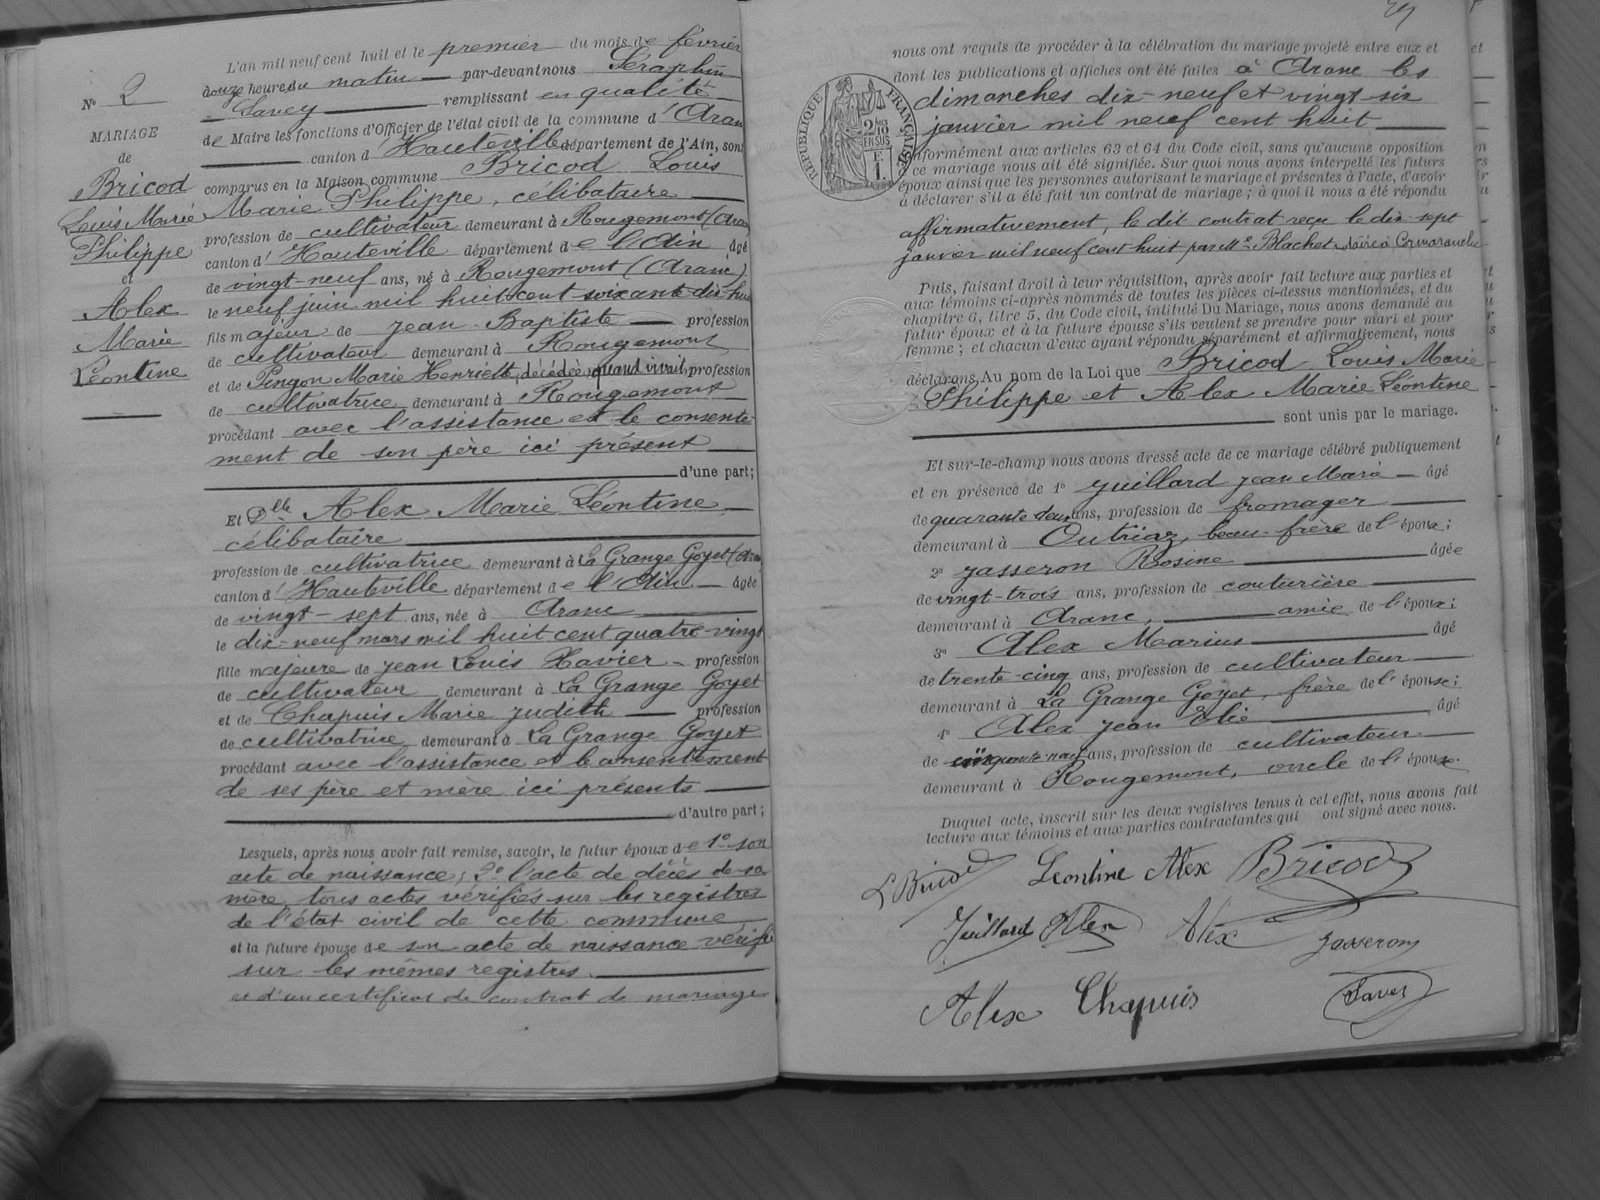 Nº 2
MARIAGE
de
Bricod
Louis Marie
Philippe
et
Alex
Marie
Léontine
L'an mil neuf cent huit et le premier du mois de février
douze heures du matin par-devant nous Séraphin
Savey remplissant en qualité
de Maire les fonctions d'Officier de l'état civil de la commune d'Aranc
canton d'Hauteville département de l'Ain, sont
comparus en la Maison commune Bricod Louis
Marie Philippe, célibataire
profession de cultivateur demeurant à Rougemont (Aranc)
canton d'Hauteville département de l'Ain âgé
de vingt-neuf ans, né à Rougemont (Aranc)
le neuf juin mil huit cent soixante-dix-huit
fils majeur de Jean-Baptiste profession
de cultivateur demeurant à Rougemont
et de Pingon Marie Henriette, décédée, quand vivait, profession
de cultivatrice demeurant à Rougemont
procédant avec l'assistance et le consente-
ment de son père ici présent
d'une part;
Et Dlle Alex Marie Léontine
célibataire
profession de cultivatrice demeurant à La Grange Goyet (Aranc)
canton d'Hauteville département de l'Ain âgée
de vingt-sept ans, née à Aranc
le dix-neuf mars mil huit cent quatre-vingt
fille majeure de Jean Louis Xavier profession
de cultivateur demeurant à La Grange Goyet
et de Chapuis Marie Judith profession
de cultivatrice demeurant à La Grange Goyet
procédant avec l'assistance et le consentement
de ses père et mère ici présents
d'autre part;
Lesquels, après nous avoir fait remise, savoir, le futur époux de 1º son
acte de naissance; 2º l'acte de décès de sa
mère, tous actes vérifiés sur les registres
de l'état civil de cette commune
et la future épouse de son acte de naissance vérifié
sur les mêmes registres.
et d'un certificat de contrat de mariage
nous ont requis de procéder à la célébration du mariage projeté entre eux et
dont les publications et affiches ont été faites à Aranc les
dimanches dix-neuf et vingt-six
janvier mil neuf cent huit
RÉPUBLIQUE FRANÇAISE
conformément aux articles 63 et 64 du Code civil, sans qu'aucune opposition
à ce mariage nous ait été signifiée. Sur quoi nous avons interpellé les futurs
époux ainsi que les personnes autorisant le mariage et présentes à l'acte, d'avoir
à déclarer s'il a été fait un contrat de mariage; à quoi il nous a été répondu
affirmativement, le dit contrat reçu le dix-sept
janvier mil neuf cent huit par Me Blachet notaire à Cormaranche
Puis, faisant droit à leur réquisition, après avoir fait lecture aux parties et
aux témoins ci-après nommés de toutes les pièces ci-dessus mentionnées, et du
chapitre 6, titre 5, du Code civil, intitulé Du Mariage, nous avons demandé au
futur époux et à la future épouse s'ils veulent se prendre pour mari et pour
femme; et chacun d'eux ayant répondu séparément et affirmativement, nous
déclarons Au nom de la Loi que Bricod Louis Marie
Philippe et Alex Marie Léontine
sont unis par le mariage.
Et sur-le-champ nous avons dressé acte de ce mariage célébré publiquement
et en présence de 1º Juillard Jean Marie âgé
de quarante-deux ans, profession de fromager
demeurant à Outriaz, beau-frère de l'époux;
2º Jasseron Rosine âgée
de vingt-trois ans, profession de couturière
demeurant à Aranc, amie de l'époux;
3º Alex Marius âgé
de trente-cinq ans, profession de cultivateur
demeurant à La Grange Goyet, frère de l'épouse;
4º Alex Jean Elie âgé
de ans, profession de cultivateur
demeurant à Rougemont, oncle de l'épouse.
Duquel acte, inscrit sur les deux registres tenus à cet effet, nous avons fait
lecture aux témoins et aux parties contractantes qui ont signé avec nous.
L Bricod Léontine Alex Bricod
Juillard Alex Alex Jasseron
Alex Chapuis Savey